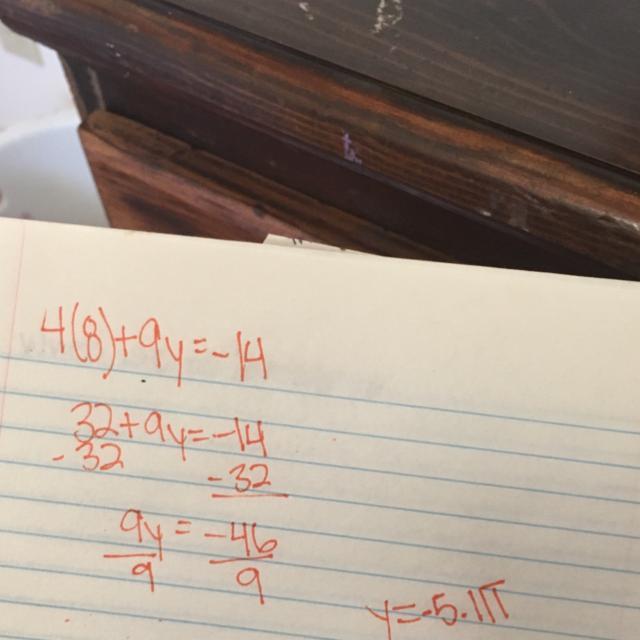 4(8)+9y=-14
32+9y=-14
-32 -32
9y = -46
9 9
y=-5.111